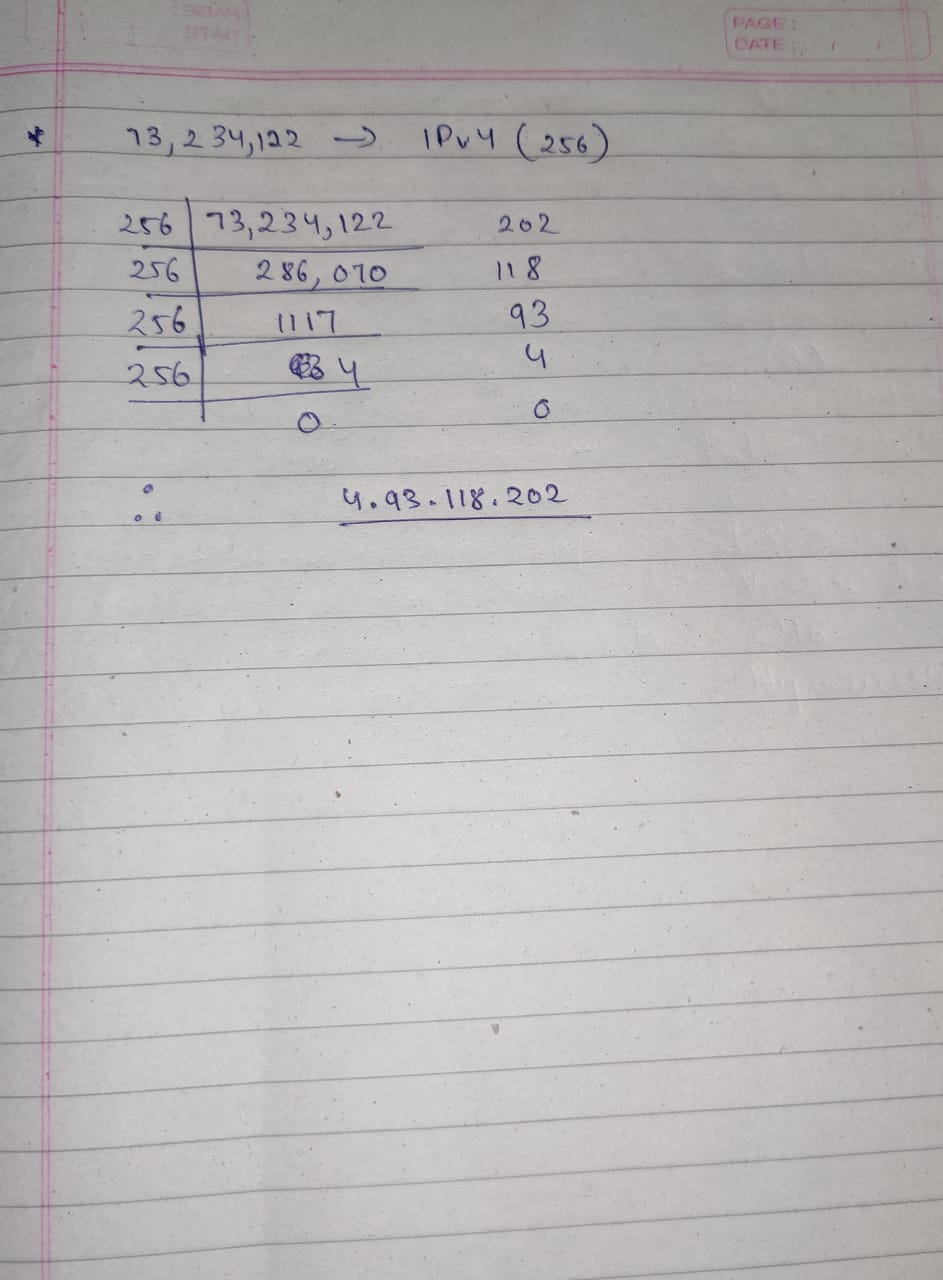 PAGE :
DATE : / /
* 73,234,122 → IPv4 (256)
256 73,234,122 202
256 286,070 118
256 1117 93
256 4 4
0 0
∴ 4.93.118.202